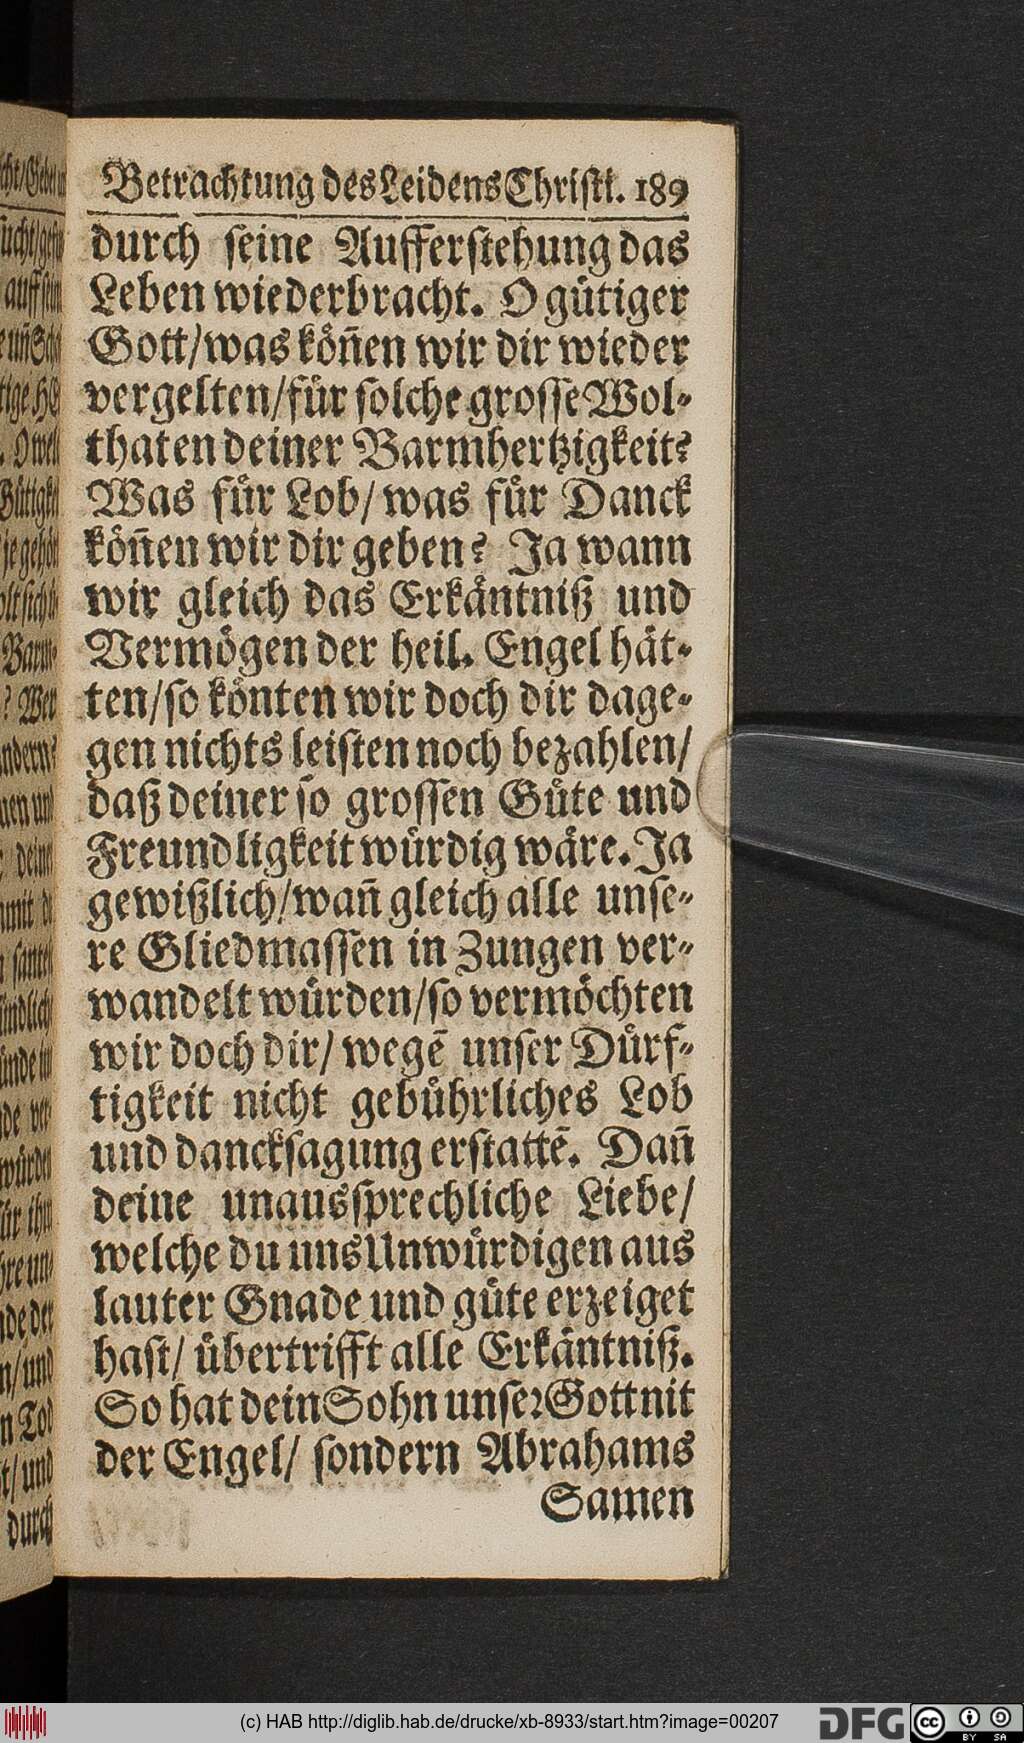 Betrachtung des Leidens Christi. 189
durch seine Aufferstehung das
Leben wiederbracht. O gütiger
Gott/ was köñen wir dir wieder
vergelten/ für solche grosse Wol-
thaten deiner Barmhertzigkeit?
Was für Lob/ was für Danck
köñen wir dir geben? Ja wann
wir gleich das Erkäntniß und
Vermögen der heil. Engel hät-
ten/ so könten wir doch dir dage-
gen nichts leisten noch bezahlen/
daß deiner so grossen Güte und
Freundligkeit würdig wäre. Ja
gewißlich/ wañ gleich alle unse-
re Gliedmassen in Zungen ver-
wandelt würden/ so vermöchten
wir doch dir/ wegē unser Dürf-
tigkeit nicht gebührliches Lob
und dancksagung erstattē. Dañ
deine unaussprechliche Liebe/
welche du uns Unwürdigen aus
lauter Gnade und güte erzeiget
hast/ übertrifft alle Erkäntniß.
So hat dein Sohn unser Gott nit
der Engel/ sondern Abrahams
Samen
(c) HAB http://diglib.hab.de/drucke/xb-8933/start.htm?image=00207
DFG
cc
BY SA